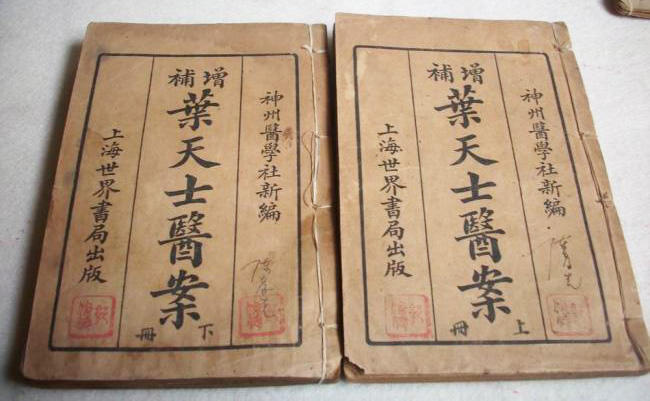 神州醫學社新編
增補
葉天士醫案
下冊
上海世界書局出版
神州醫學社新編
增補
葉天士醫案
上冊
上海世界書局出版